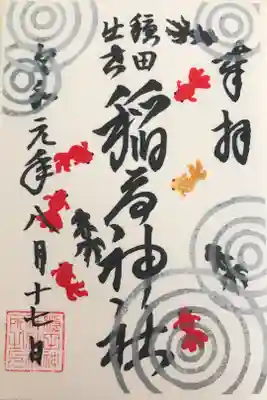 奉拝
穏田
出世
稲荷神社
令和元年八月十七日